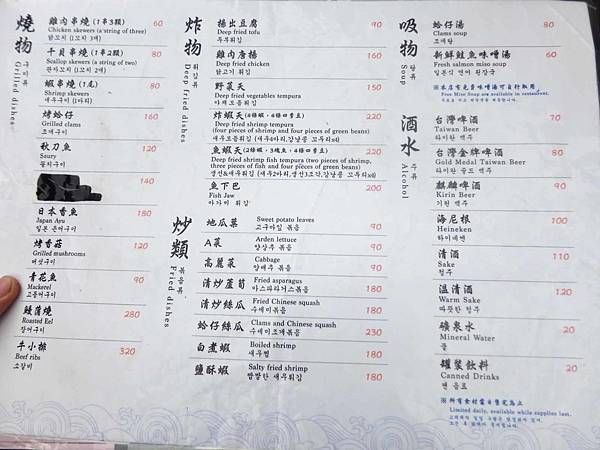 燒物
구이류
Grilled dishes
雞肉串燒(1串3顆) 60
Chicken skewers (a string of three)
닭꼬치 (1꼬치 3개)
干貝串燒(1串2顆) 80
Scallop skewers (a string of two)
관자꼬치 (1꼬치 2개)
蝦串燒(1尾) 80
Shrimp skewers
새우구이 (1마리)
烤蛤仔 160
Grilled clams
조개구이
秋刀魚 120
Saury
꽁치구이
140
日本香魚 180
Japan Ayu
일본 은어구이
烤香菇 120
Grilled mushrooms
버섯구이
青花魚 90
Mackerel
고등어구이
鰻蒲燒 280
Roasted Eel
장어구이
牛小排 320
Beef ribs
소갈비
炸物
튀김류
Deep fried dishes
揚出豆腐 90
Deep fried tofu
두부튀김
雞肉唐揚 160
Deep fried chicken
닭고기 튀김
野菜天 150
Deep fried vegetables tempura
야채모듬튀김
炸蝦天(4條蝦,4條四季豆) 220
Deep fried shrimp tempura
(four pieces of shrimp and four pieces of green beans)
새우모듬튀김 (새우4마리,강낭콩 꼬투리x4)
魚蝦天(2條蝦,3塊魚,4條四季豆) 220
Deep fried shrimp fish tempura (two pieces of shrimp,
three pieces of fish and four pieces of green beans)
생선&새우튀김 (새우2마리,생선3조각,강낭콩 꼬투리x4)
魚下巴 200
Fish Jaw
아가미 튀김
炒類
볶음류
Fried dishes
地瓜葉 Sweet potato leaves 90
고구마잎 볶음
A菜 Arden lettuce 90
양상추 볶음
高麗菜 Cabbage 90
양배추 볶음
清炒蘆筍 Fried asparagus 180
아스파라거스볶음
清炒絲瓜 Fried Chinese squash 180
수세미볶음
蛤仔絲瓜 Clams and Chinese squash 230
수세미조개볶음
白煮蝦 Boiled shrimp 180
새우찜
鹽酥蝦 Salty fried shrimp 180
짭짤한 새우튀김
吸物
탕류
Soup
蛤仔湯 80
Clams soup
조개탕
新鮮鮭魚味噌湯 60
Fresh salmon miso soup
일본식 연어 된장국
※本店有免費味噌湯可自行取用
Free Miso Soup are available in restaurant.
酒水
주류
Alcohol
台灣啤酒 70
Taiwan Beer
타이완 맥주
台灣金牌啤酒 80
Gold Medal Taiwan Beer
타이완 골드 맥주
麒麟啤酒 90
Kirin Beer
기린 맥주
海尼根 100
Heineken
하이네켄
清酒 110
Sake
청주
溫清酒 120
Warm Sake
따뜻한 청주
礦泉水 20
Mineral Water
물
罐裝飲料 20
Canned Drinks
캔 음료
※所有食材當日售完為止
Limited daily, available while supplies last.